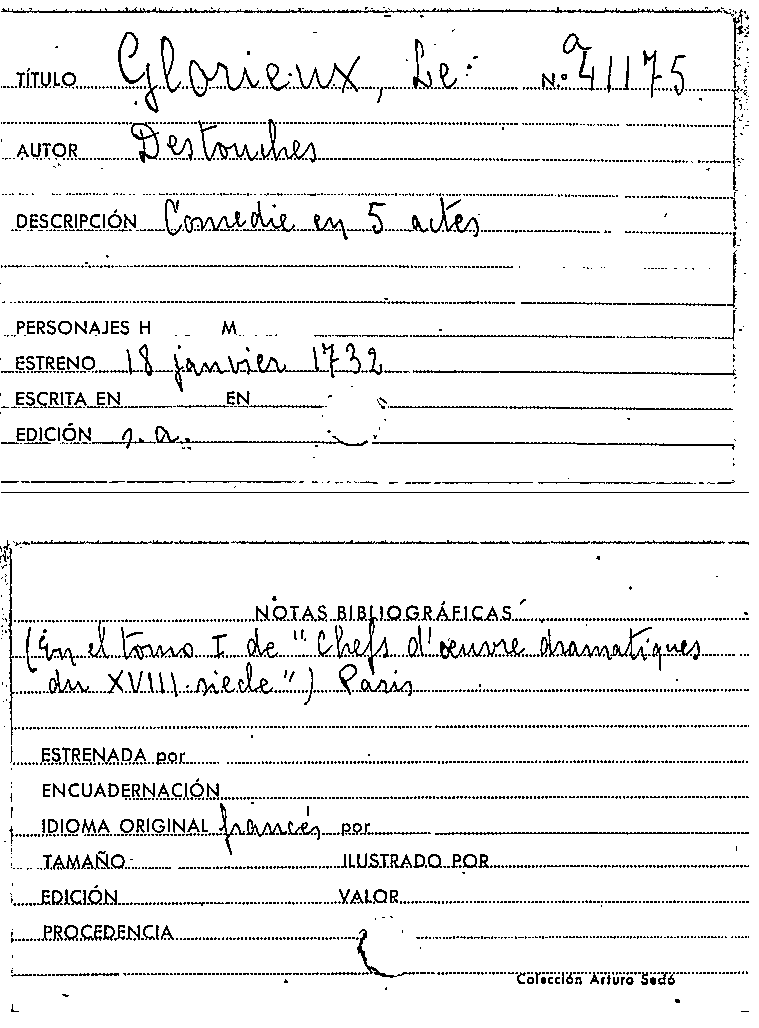 TÍTULO Glorieux, Le. N.º a 41175
AUTOR Destouches
DESCRIPCIÓN Comedie en 5 actes
PERSONAJES H M
ESTRENO 18 janvier 1732
ESCRITA EN EN
EDICIÓN s.a.
NOTAS BIBLIOGRÁFICAS
(En el tomo I de "Chefs d'œuvre dramatiques
du XVIII siecle") Paris
ESTRENADA por
ENCUADERNACIÓN
IDIOMA ORIGINAL francés por
TAMAÑO ILUSTRADO POR
EDICIÓN VALOR
PROCEDENCIA
Colección Arturo Sedó